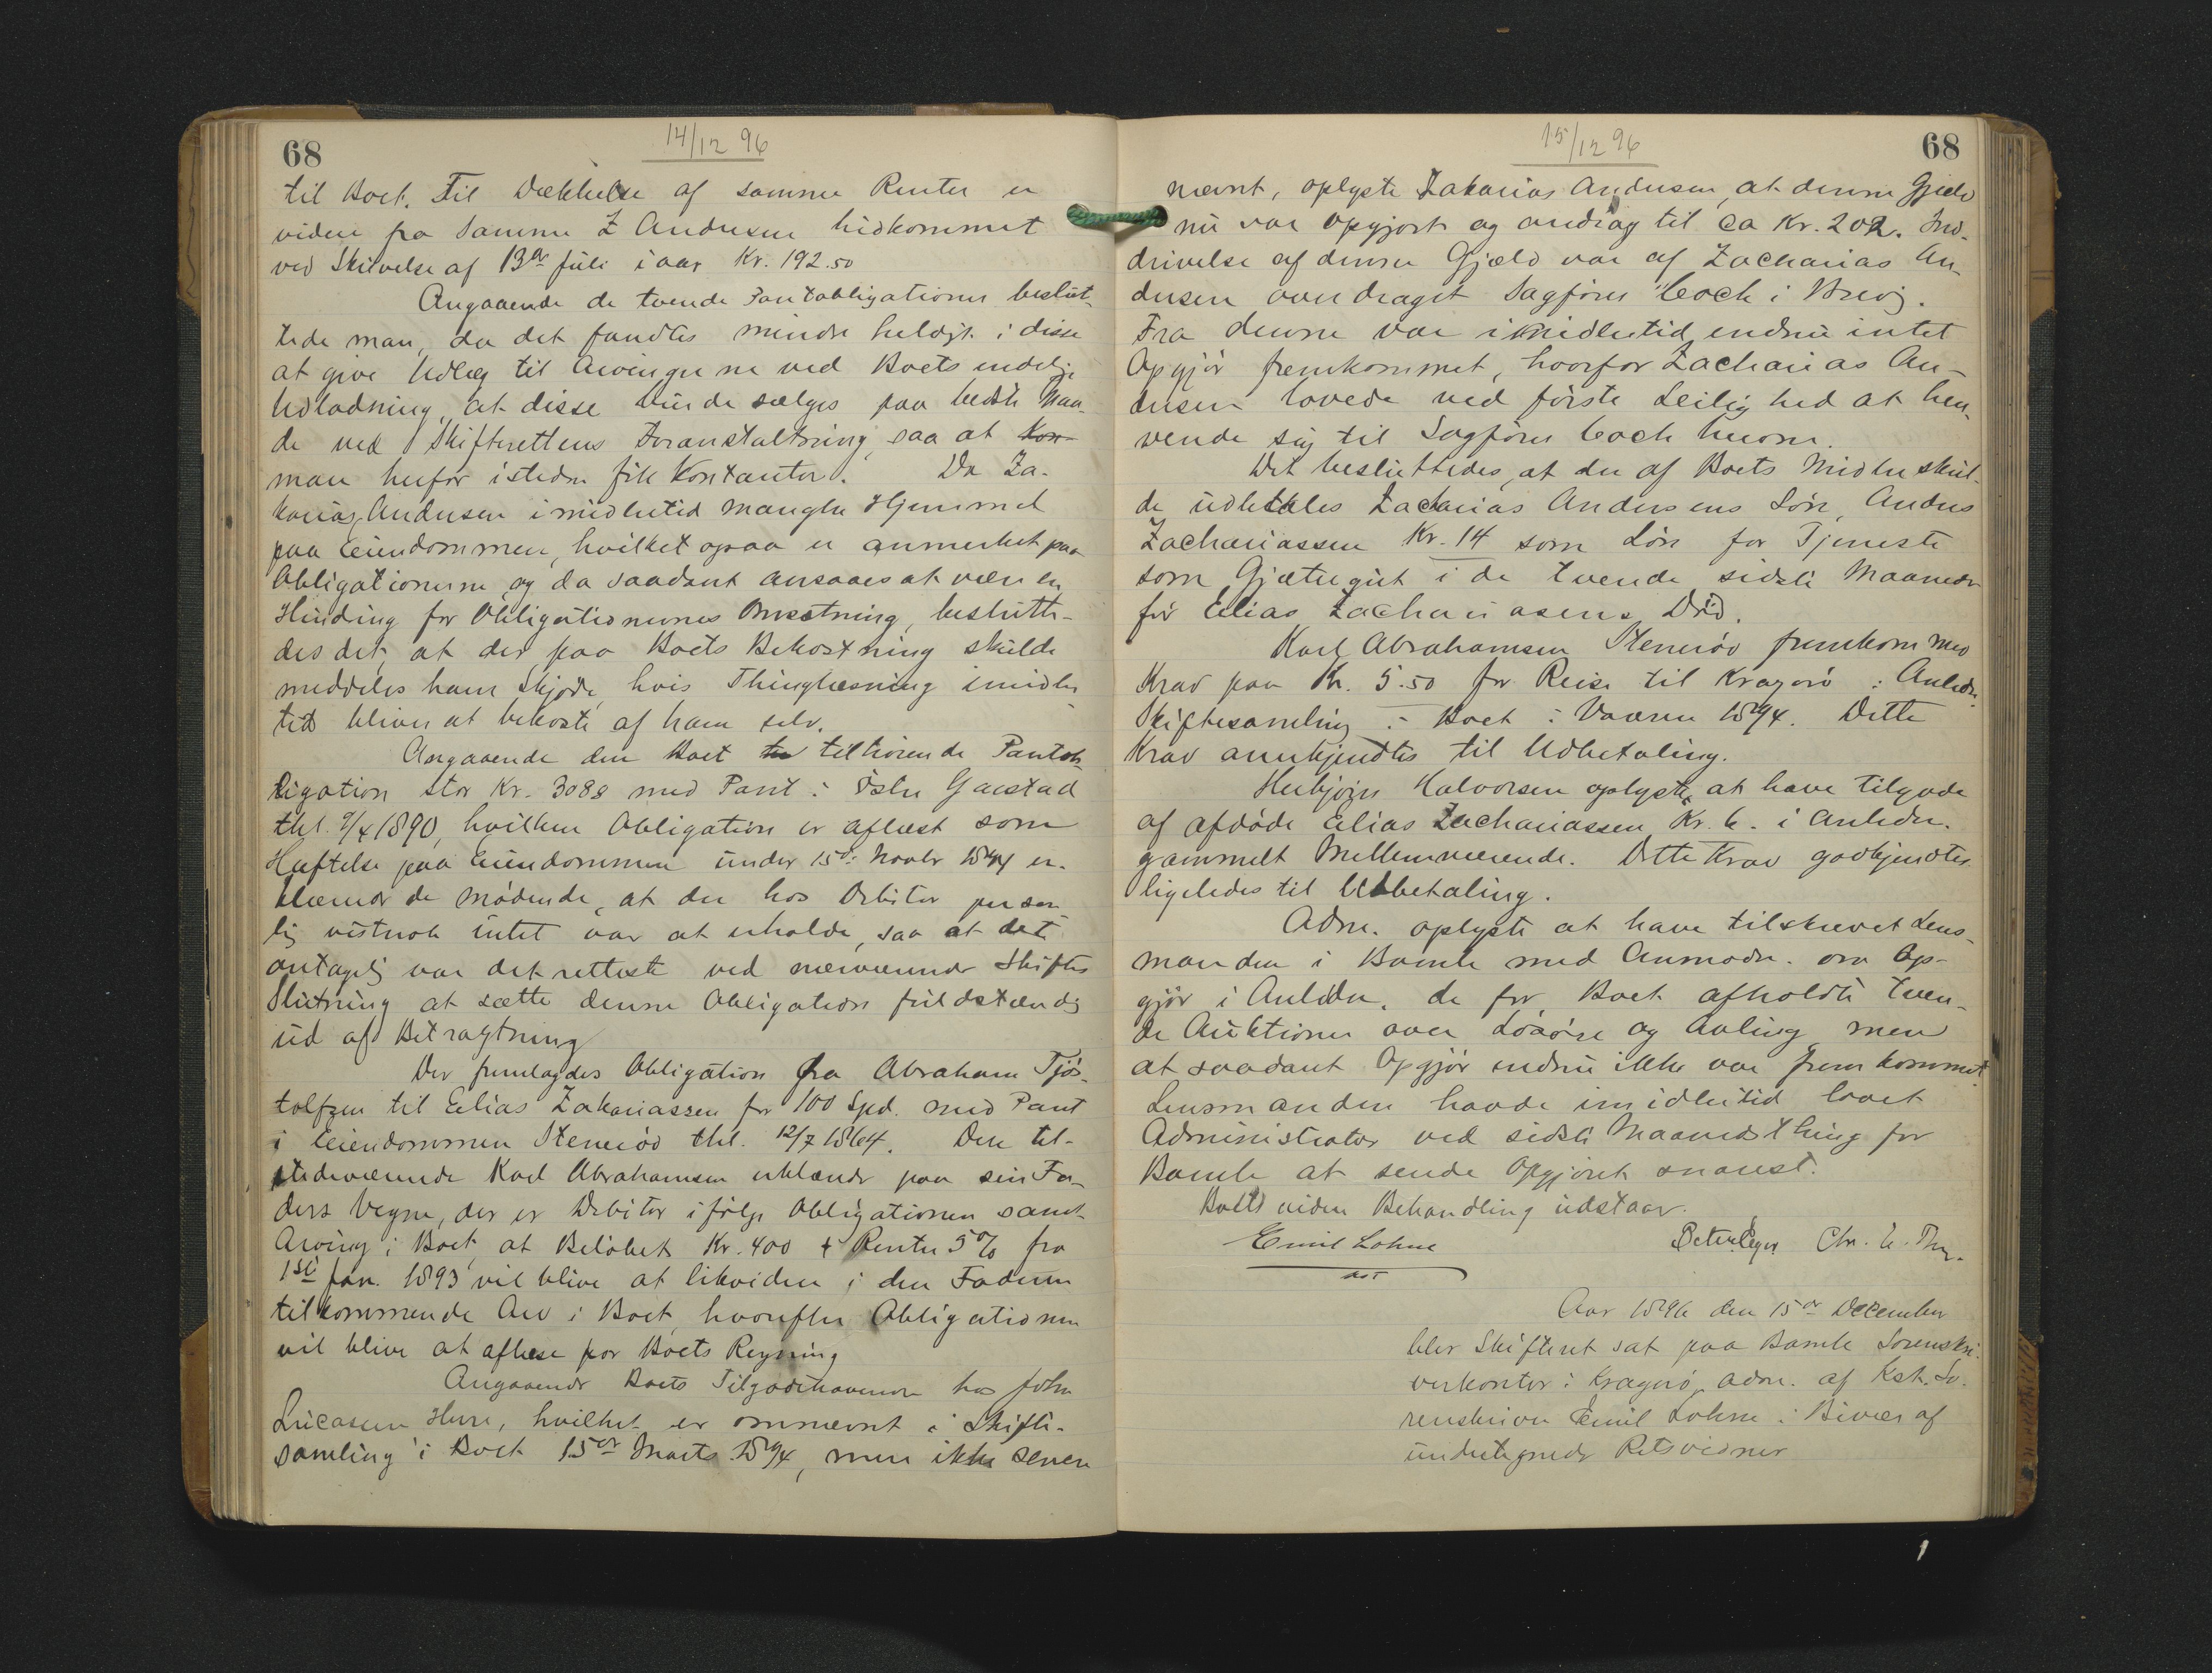 68
14/12 96
til Boet. Til Dækkelse af samme Renter er
videre fra samme Z Andersen hidkommet
ved Skrivelse af 13de Juli i aar Kr. 192.50
Angaaende de tvende Pantobligationer beslut-
tede man, da det fandtes mindre heldigt i disse
at give Udlæg til Arvingerne ved Boets endelige
Udlodning, at disse burde sælges paa bedste Maa-
de ved Skifterettens Foranstaltning, saa at Kon-
man herfor isteden fik Kontanter. Da Za-
karias Andersen imidlertid mangler Hjemmel
paa Eiendommen, hvilket ogsaa er anmerket paa
Obligationerne og da saadant ansaaes at være en
Hindring for Obligationernes Omsætning, beslutte-
des det, at der paa Boets Bekostning skulde
meddeles ham Skjøde, hvis Thinglæsning imidler
tid bliver at bekoste af ham selv.
Angaaende den Boet tilhørende Pantob-
ligation stor Kr. 3088 med Pant i Østre Gaestad
thl. 9/4 1890, hvilken Obligation er aflæst som
Heftelse paa Eiendommen under 15de Novbr 1894 er-
klærede de mødende, at der hos Debitor person
lig vistnok intet var at erholde, saa at det
antagelig var det retteste ved nærværende Skiftes
Slutning at sætte denne Obligation fuldstændig
ud af Betragtning
Der fremlagdes Obligation fra Abraham Tjøs-
tolfsen til Elias Zakariassen for 100 Spd. med Pant
i Eiendommen Stenerød thl. 12/7 1864. Den til-
stedeværende Karl Abrahamsen erklærede paa sin Fa-
ders Vegne, der er Debitor ifølge Obligationen samt
Arving i Boet, at Beløbet Kr. 400 + Renter 5% fra
1ste Jan. 1893 vil blive at likvidere i den Faderen
tilkommende Arv i Boet, hvorefter Obligationen
vil blive at aflæse for Boets Regning
Angaaende Boets Tilgodehavende hos John
Lucasen Herre, hvilket er omnævnt i Skifte-
samling i Boet 15de Marts 1894, men ikke senere
68
15/12 96
nævnt, oplyste Zakarias Andersen, at denne Gjæld
nu var opgjort og androg til ca Kr. 202. Ind-
drivelse af denne Gjæld var af Zacharias An-
dersen overdraget Sagfører Coch i Brevig.
Fra denne var imidlertid endnu intet
Opgjør fremkommet, hvorfor Zacharias An-
dersen lovede ved første Leilighed at hen-
vende sig til Sagfører Coch herom.
Det besluttedes, at der af Boets Midler skul-
de udbetales Zacharias Andersens Søn, Anders
Zachariassen Kr. 14 som Løn for Tjeneste
som Gjætergut i de tvende sidste Maaneder
før Elias Zachariasens Død.
Karl Abrahamsen Stenerød fremkom med
Krav paa Kr. 5.50 for Reise til Kragerø i Anledn.
Skiftesamling i Boet i Vaaren 1894. Dette
Krav annerkjendtes til Udbetaling.
Herbjørn Halvorsen oplyste, at have tilgode
af afdøde Elias Zachariassen Kr. 6. i Anledn.
gammelt Mellemværende. Dette Krav godkjendtes
ligeledes til Udbetaling.
Adm. oplyste at have tilskrevet Lens-
manden i Bamle med Anmodn. om Op-
gjør i Anledn. de for Boet afholdte tven-
de Auktioner over Løsøre og Avling, men
at saadant Opgjør endnu ikke var fremkommet.
Lensmanden havde imidlertid lovet
Administrator ved sidste Maanedsthing for
Bamle at sende Opgjøret snarest.
Boets videre Behandling udstaar.
Emil Lohne
Aar 1896 den 15de December
blev Skifteret sat paa Bamle Sorenskri-
verkontor i Kragerø, adm. af Kst. So-
renskriver Emil Lohne i Bivær af
undertegnede Retsvidner